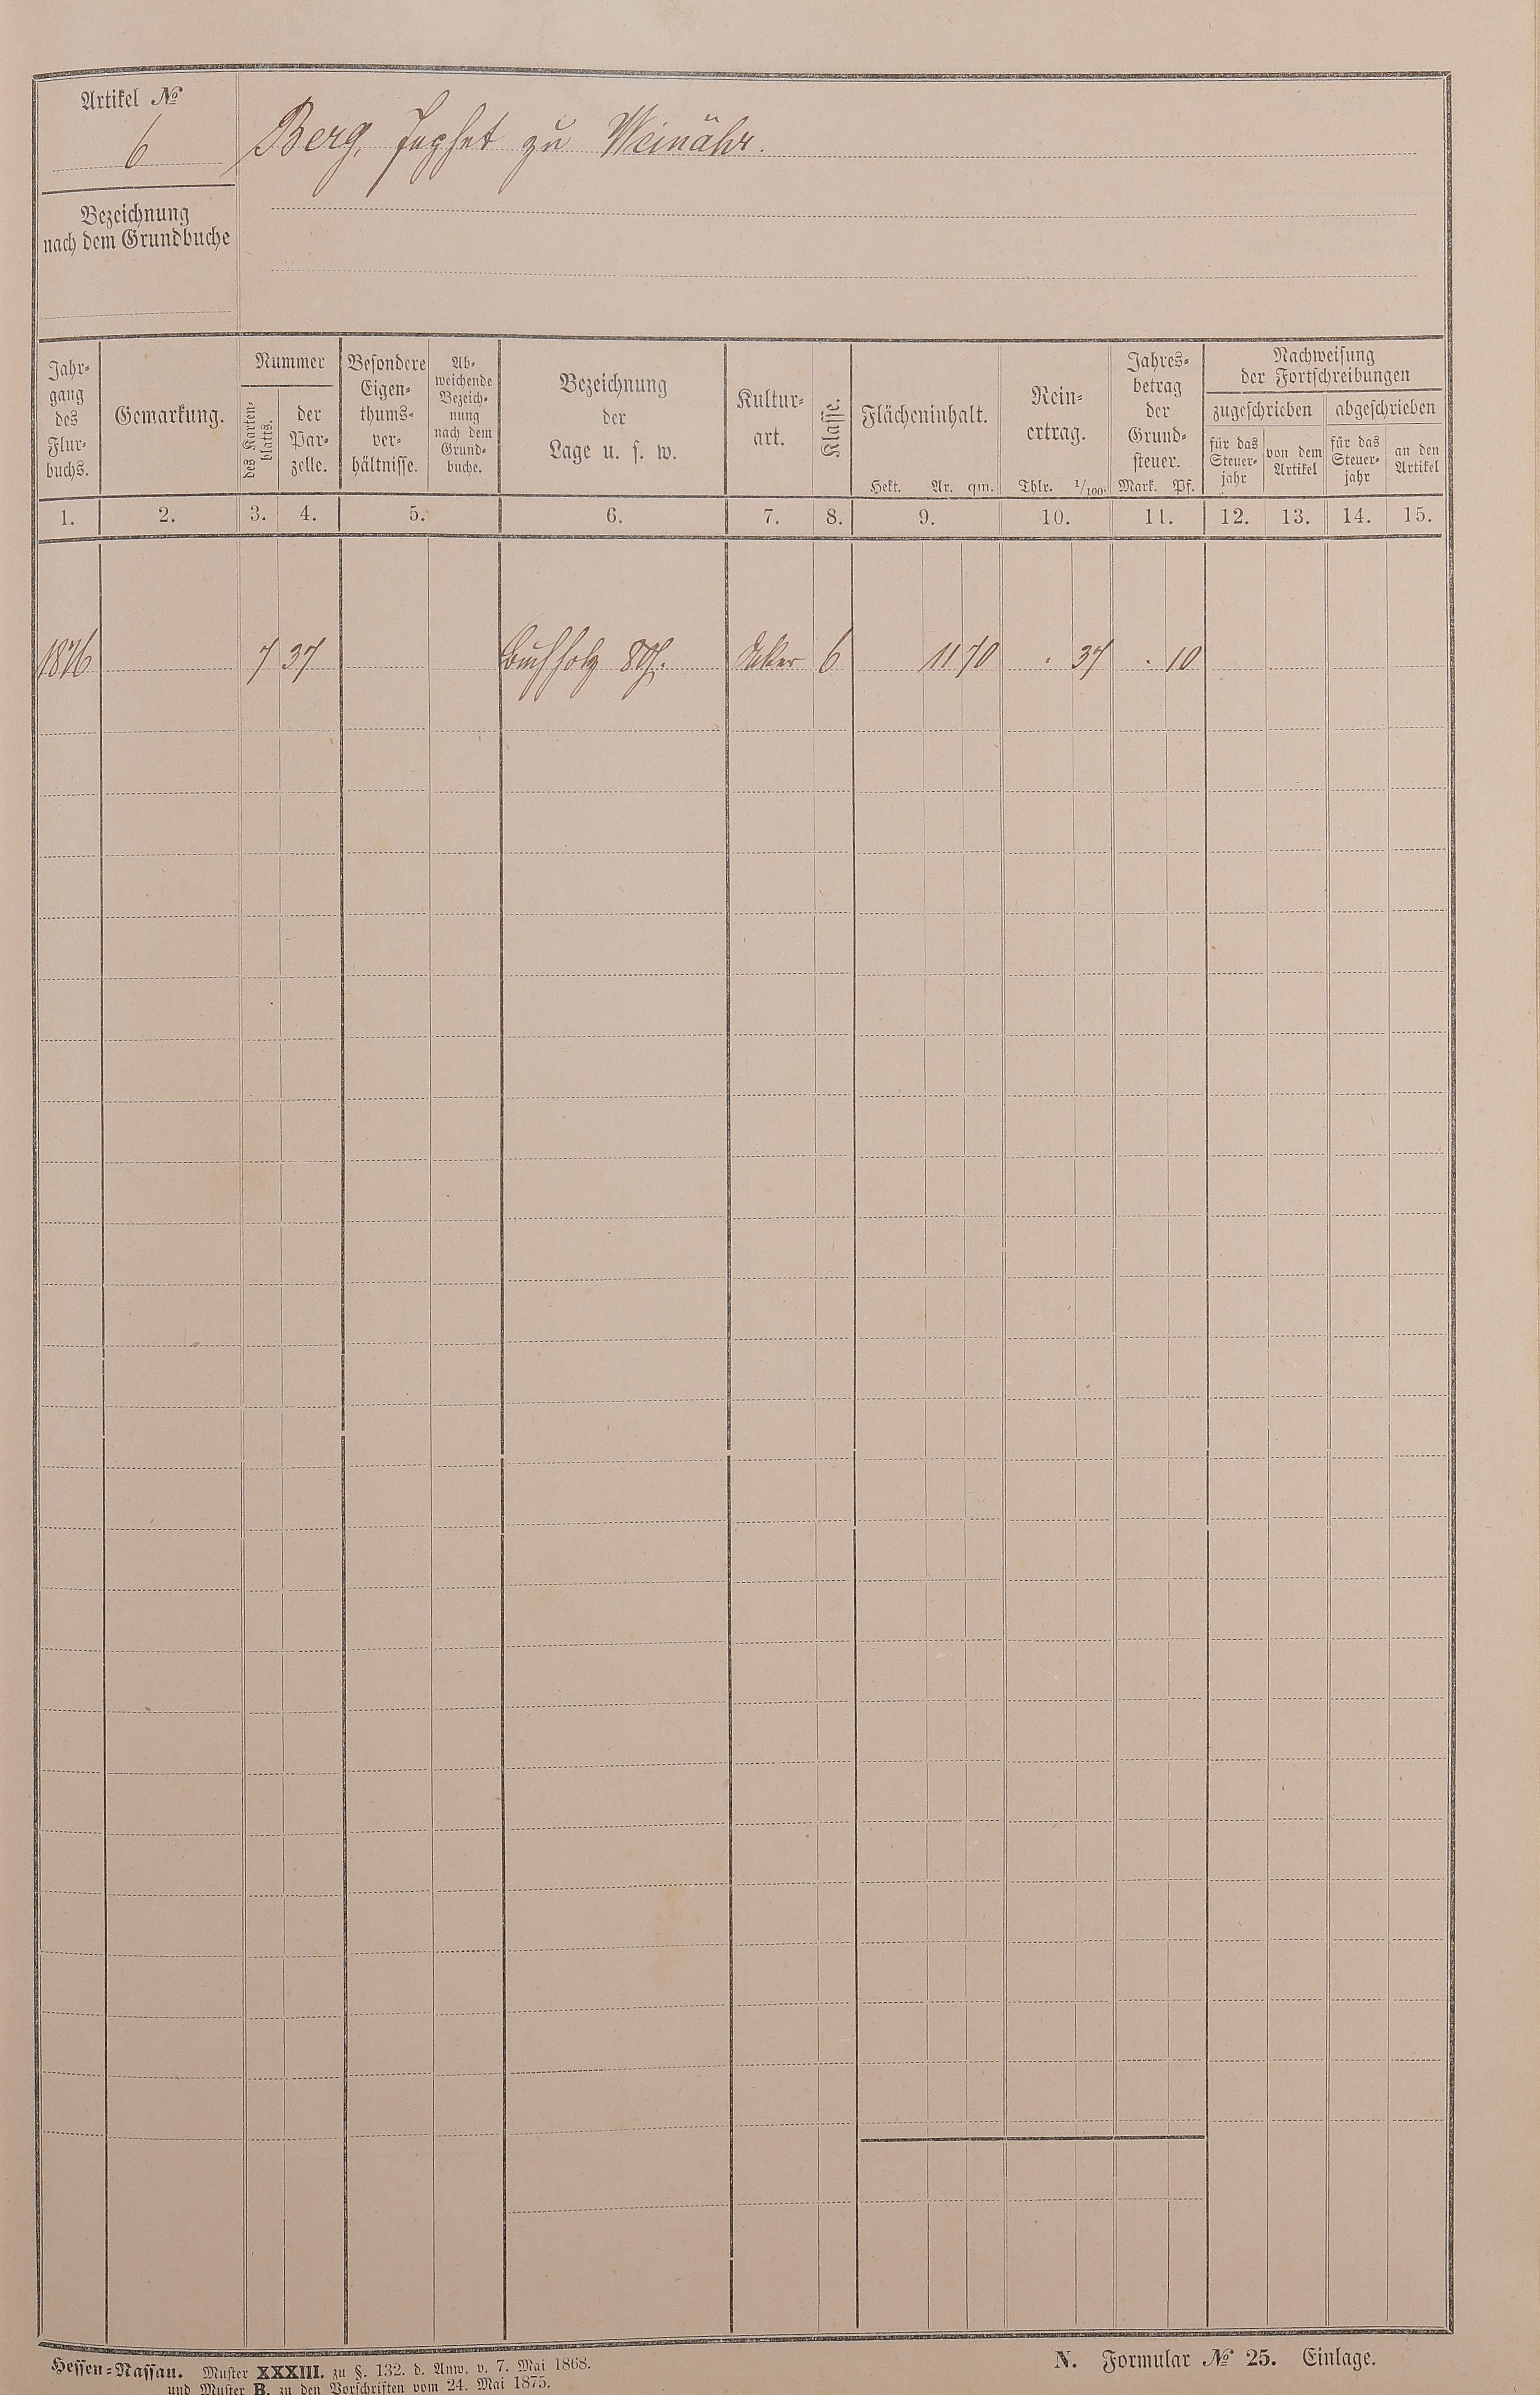 Artikel №
6
Berg, Joseph zu Weinähr.
Bezeichnung
nach dem Grundbuche
Jahr-
gang
des
Flur-
buchs.
Gemarkung.
Nummer
des Karten-
blatts.
der
Par-
zelle.
Besondere
Eigen-
thums-
ver-
hältnisse.
Ab-
weichende
Bezeich-
nung
nach dem
Grund-
buche.
Bezeichnung
der
Lage u. s. w.
Kultur-
art.
Klasse.
Flächeninhalt.
Hekt. Ar. qm.
Rein-
ertrag.
Thlr. 1/100.
Jahres-
betrag
der
Grund-
steuer.
Mark. Pf.
Nachweisung
der Fortschreibungen
zugeschrieben
abgeschrieben
für das
Steuer-
jahr
von dem
Artikel
für das
Steuer-
jahr
an den
Artikel
1. 2. 3. 4. 5. 6. 7. 8. 9. 10. 11. 12. 13. 14. 15.
1876 7 37 Buchholz Acker 6 11 70 . 37 . 10
Hessen-Nassau. Muster XXXIII. zu §. 132. d. Anw. v. 7. Mai 1868.
und Muster B. zu den Vorschriften vom 24. Mai 1875.
N. Formular № 25. Einlage.